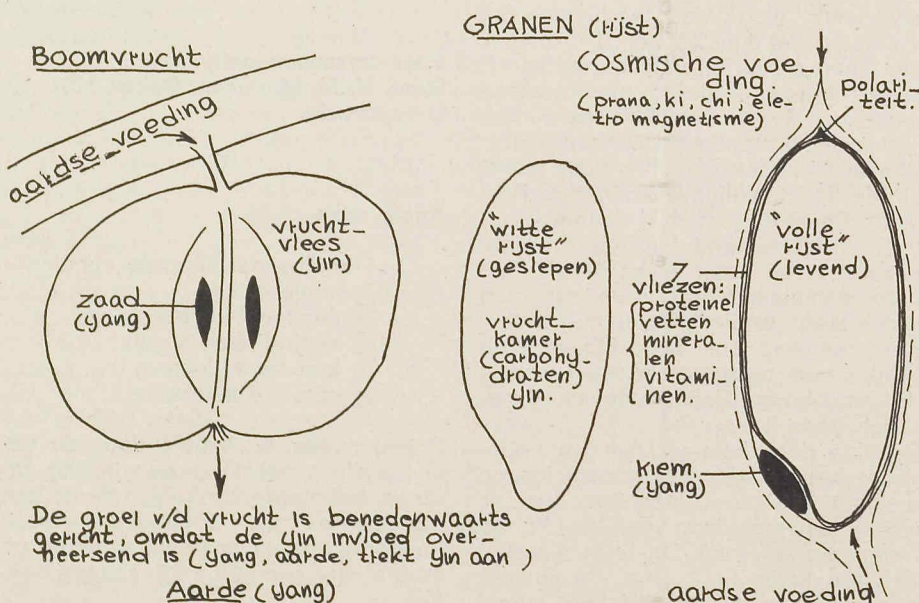 Boomvrucht
aardse voeding
vrucht-
vlees
(yin)
zaad
(yang)
De groei v/d vrucht is benedenwaarts
gericht, omdat de yin, invloed over-
heersend is (yang, aarde, trekt yin aan)
Aarde (yang)
GRANEN (rijst)
COSMISCHE VOE-
DING.
(prana, ki, chi, ele-
ctro magnetisme)
polari-
teit.
"witte
rijst"
(geslepen)
vrucht-
kamer
(carbohy-
draten)
yin.
"volle
rijst"
(levend)
vliezen:
proteine
vetten
minera-
len
vitami-
nen.
kiem,
(yang)
aardse voeding